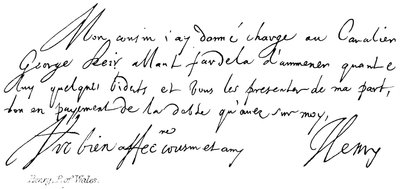 Mon cousin i'ay donné charge au Cavalier
George Keir allant par dela d'ammener quant e
luy quelques bidets et vous les presenter de ma part,
non en payement de la debte qu'avez sur moy,
Vre bien affecnē cousin et amy Henry
Henry, P. of Wales.